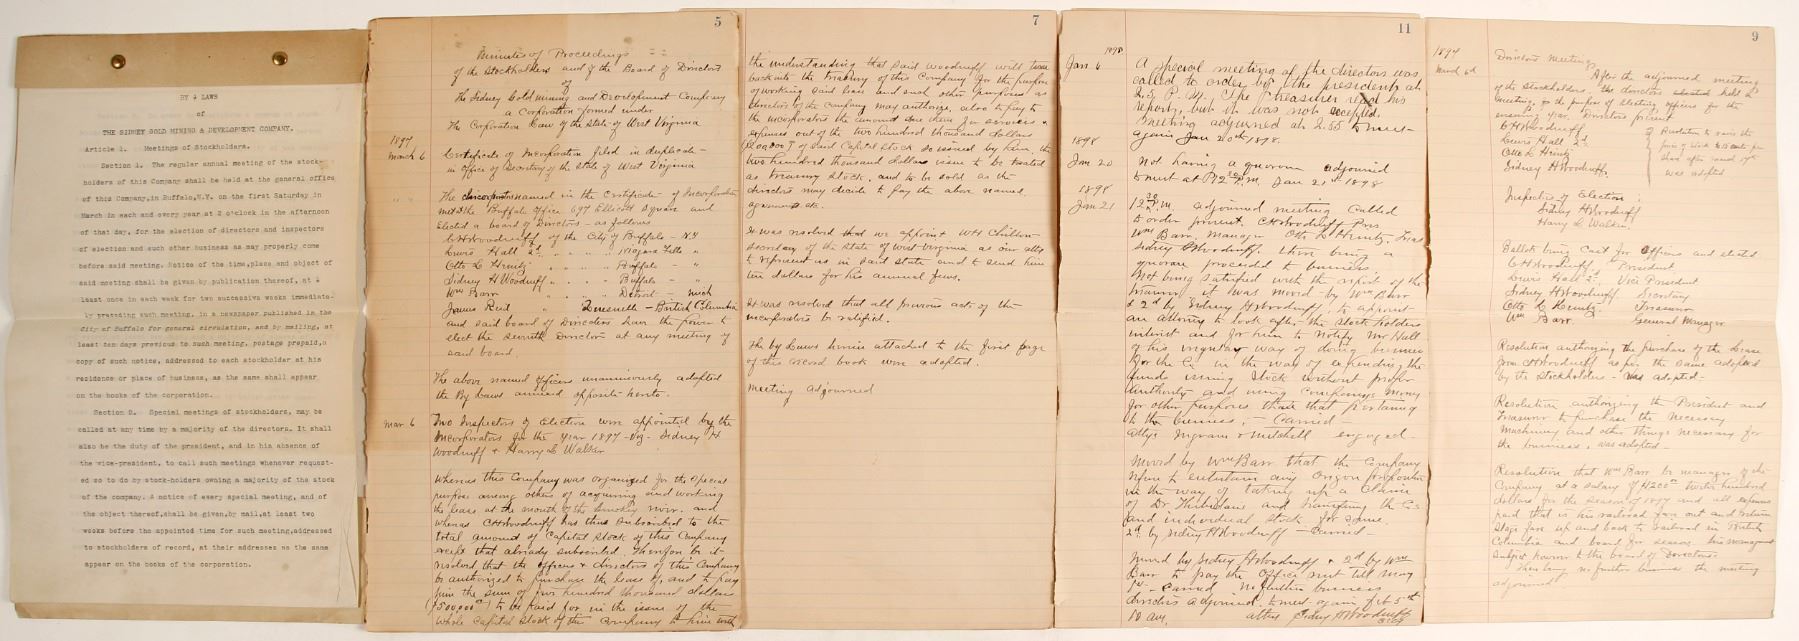 BY - LAWS
of
THE SIDNEY GOLD MINING & DEVELOPMENT COMPANY.
Article 1. Meetings of Stockholders.
Section 1. The regular annual meeting of the stock-
holders of this Company shall be held at the general office
of this Company, in Buffalo, N.Y. on the first Saturday in
March in each and every year at 2 o'clock in the afternoon
of that day, for the election of directors and inspectors
of election and such other business as may properly come
before said meeting. Notice of the time, place and object of
said meeting shall be given by publication thereof, at
least once in each week for two successive weeks immediate-
ly preceding such meeting, in a newspaper published in the
City of Buffalo for general circulation, and by mailing, at
least ten days previous to such meeting, postage prepaid, a
copy of such notice, addressed to each stockholder at his
residence or place of business, as the same shall appear
on the books of the corporation.
Section 2. Special meetings of stockholders, may be
called at any time by a majority of the directors. It shall
also be the duty of the president, and in his absence of
the vice-president, to call such meetings whenever request-
ed so to do by stock-holders owning a majority of the stock
of the company. A notice of every special meeting, and of
the object thereof, shall be given, by mail, at least two
weeks before the appointed time for such meeting, addressed
to stockholders of record, at their addresses as the same
appear on the books of the corporation.
5
Minutes of Proceedings
of the Stockholders and of the Board of Directors
of
The Sidney Gold mining and Development Company
a Corporation formed under
The Corporation Law of the State of West Virginia
1897
March 6 Certificate of Incorporation filed in duplicate -
in Office of Secretary of the State of West Virginia
" " The incorporators named in the Certificate of Incorporation
met at the Buffalo Office 697 Ellicott Square and
Elected a board of Directors - as follows
C H Woodruff of the City of Buffalo - N.Y
Lewis Hall 2d " " " " Niagara Falls "
Otto L Heintz " " " " Buffalo - "
Sidney H Woodruff " " " " Buffalo - "
Wm Barr " " " " Detroit - Mich
James Reid " Quesnelle - British Columbia
and said board of Directors have the power to
elect the seventh Director at any meeting of
said board.
The above named officers unanimously adopted
the By Laws annexed opposite hereto.
Mar. 6 Two Inspectors of Election were appointed by the
Incorporators for the year 1897 - viz - Sidney H
Woodruff & Harry L Walker
Whereas this Company was organized for the special
purpose among others of acquiring and working
the lease at the mouth of the river. and
whereas C H Woodruff has thus subscribed to the
total amount of Capital Stock of this Company
except that already subscribed. Therefore be it
resolved that the officers & directors of this Company
be authorized to purchase the lease of, and to pay
him the sum of five hundred thousand dollars
($500,000 00) to be paid for in the issue of the
whole Capital Stock of the Company to him with
7
the understanding that said Woodruff will turn
back into the treasury of this Company for the purpose
of working said lease and such other purposes as
directors of the company may authorize, also to pay to
the incorporators the amount due them for services &
expenses out of the two hundred thousand dollars
(200,000) of said Capital Stock so issued by him, the
two hundred thousand dollars issue to be treated
as treasury stock, and to be sold as the
directors may decide to pay the above named
agreements etc.
It was resolved that we appoint W H Chilton
secretary of the state of West Virginia as our atty
to represent us in said state and to send him
ten dollars for his annual fees.
It was resolved that all previous acts of the
incorporators be ratified.
The by Laws herein attached to the first page
of this record book were adopted.
Meeting adjourned
11
1898
Jan. 6 A special meeting of the directors was
called to order by the president at
2.30 P.M. The treasurer read his
report, but it was not accepted.
Meeting adjourned at 2.55 to meet
again Jan 20th 1898.
1898
Jan 20 Not having a quorum adjourned
to meet at P.M. Jan 21st 1898
1898
Jan 21 adjourned meeting called
to order present. C H Woodruff - Pres
Wm Barr, Manager Otto L Heintz, Treas
Sidney H Woodruff. There being a
quorum proceeded to business
Not being satisfied with the report of the
treasurer it was moved by Wm Barr
& 2d by Sidney H Woodruff to appoint
an attorney to look after the stock holders
interest and for him to notify Mr Hall
of his irregular way of doing business
for the Co. in the way of expending the
funds issuing Stock without proper
authority and using Company's money
for other purposes than that pertaining
to the business, Carried -
Attys Ingram & Mitchell engaged.
Moved by Wm Barr that the Company
refuse to entertain any proposition
in the way of taking up a claim
of Dr and transfering the Co's
and individual stock for same.
2d by Sidney H Woodruff - Carried -
Moved by Sidney H Woodruff & 2d by Wm
Barr to pay the Office rent till May
1st - Carried No further business
directors adjourned to meet again Feb 5th
10 am. attest Sidney H Woodruff
Secy
9
1897
March 6th Directors Meeting
After the adjourned meeting
of the Stockholders. the directors held a
meeting for the purpose of electing officers for the
ensuing year. Directors present
C H Woodruff
Lewis Hall 2d
Otto L Heintz
Sidney H Woodruff.
Resolution to raise the
price of stock to cents per
share after
was adopted
Inspectors of Election;
Sidney H Woodruff
Harry L. Walker.
Ballots being Cast for Officers and elected
C H Woodruff President
Lewis Hall 2d Vice President
Sidney H Woodruff. Secretary
Otto L Heintz. Treasurer
Wm Barr. General Manager
Resolution authorizing the purchase of the lease
from C H Woodruff as per the same adopted
by the Stockholders - was adopted -
Resolution authorizing the President and
Treasurer to purchase the necessary
Machinery and other things necessary for
the business, was adopted -
Resolution that Wm Barr be manager of the
Company at a salary of $1200 00 twelve hundred
dollars for the season of 1897 and all expenses
paid that is his railroad fare out and return
Stage fare up and back to railroad in British
Columbia and board for season
subject however to the board of Directors.
There being no further business the meeting
adjourned